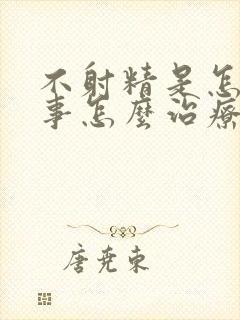 不射精是怎
事怎麼治療
唐堯東